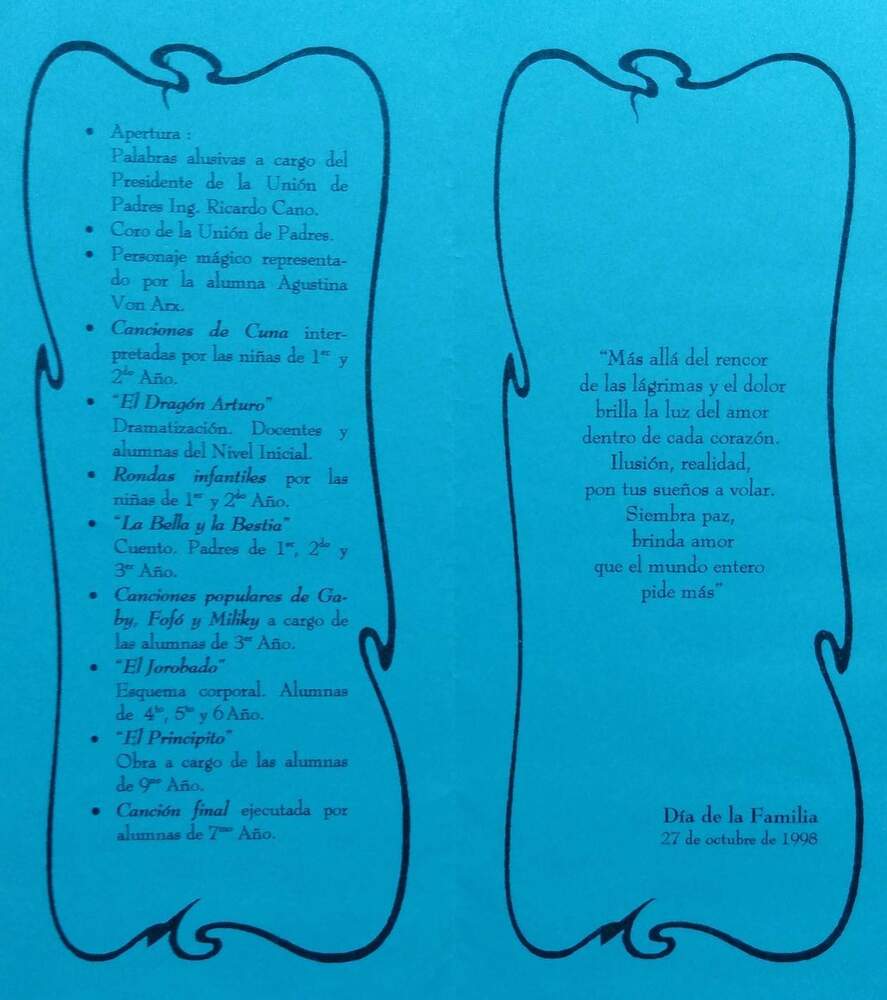 • Apertura :
Palabras alusivas a cargo del
Presidente de la Unión de
Padres Ing. Ricardo Cano.
• Coro de la Unión de Padres.
• Personaje mágico representa-
do por la alumna Agustina
Von Arx.
• Canciones de Cuna inter-
pretadas por las niñas de 1er y
2do Año.
• "El Dragón Arturo"
Dramatización. Docentes y
alumnas del Nivel Inicial.
• Rondas infantiles por las
niñas de 1er y 2do Año.
• "La Bella y la Bestia"
Cuento. Padres de 1er, 2do y
3er Año.
• Canciones populares de Ga-
by, Fofó y Miliky a cargo de
las alumnas de 3er Año.
• "El Jorobado"
Esquema corporal. Alumnas
de 4to, 5to y 6 Año.
• "El Principito"
Obra a cargo de las alumnas
de 9no Año.
• Canción final ejecutada por
alumnas de 7mo Año.
"Más allá del rencor
de las lágrimas y el dolor
brilla la luz del amor
dentro de cada corazón.
Ilusión, realidad,
pon tus sueños a volar.
Siembra paz,
brinda amor
que el mundo entero
pide más"
Día de la Familia
27 de octubre de 1998